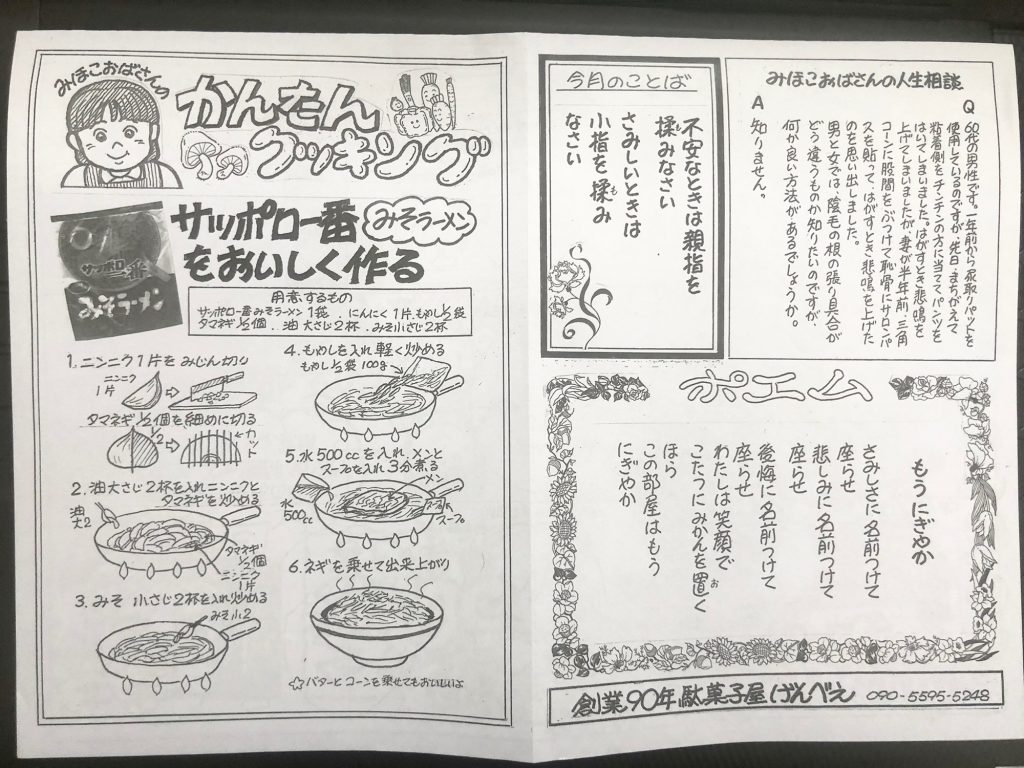 みほこおばさんの
かんたん
クッキング
サッポロ一番
みそラーメン
サッポロ一番
みそラーメン
をおいしく作る
用意するもの
サッポロ一番みそラーメン1袋．にんにく1片．もやし1/2袋
タマネギ1/2個．油大さじ2杯．みそ小さじ2杯
1.ニンニク1片をみじん切り
ニンニク
1片
タマネギ1/2個を細めに切る
1/2
カット
2.油大さじ2杯を入れニンニクと
タマネギを炒める
油
大2
タマネギ
1/2個
ニンニク
1片
3.みそ小さじ2杯を入れ炒める
みそ小2
4.もやしを入れ軽く炒める
もやし1/2袋100g
5.水500ccを入れ、メンと
スープを入れ3分煮る
メン
水
500cc
スープ
6.ネギを乗せて出来上がり
☆バターとコーンを乗せてもおいしいよ
今月のことば
不安なときは親指を
揉みなさい
さみしいときは
小指を揉み
なさい
みほこおばさんの人生相談
Q
60代の男性です。一年前から尿取りパットを
使用しているのですが、先日、まちがえて
粘着側をチンチンの方に当ててパンツを
はいてしまいました。はがすとき悲鳴を
上げてしまいましたが、妻が半年前、三角
コーンに股間をぶつけて恥骨にサロンパ
スを貼って、はがすとき悲鳴を上げた
のを思い出しました。
男と女では、陰毛の根の張り具合が
どう違うものか知りたいのですが、
何か良い方法があるでしょうか。
A
知りません。
ポエム
もうにぎやか
さみしさに名前つけて
座らせ
悲しみに名前つけて
座らせ
後悔に名前つけて
座らせ
わたしは笑顔で
こたつにみかんを置く
ほら
この部屋はもう
にぎやか
創業90年駄菓子屋げんべえ 090-5595-5248